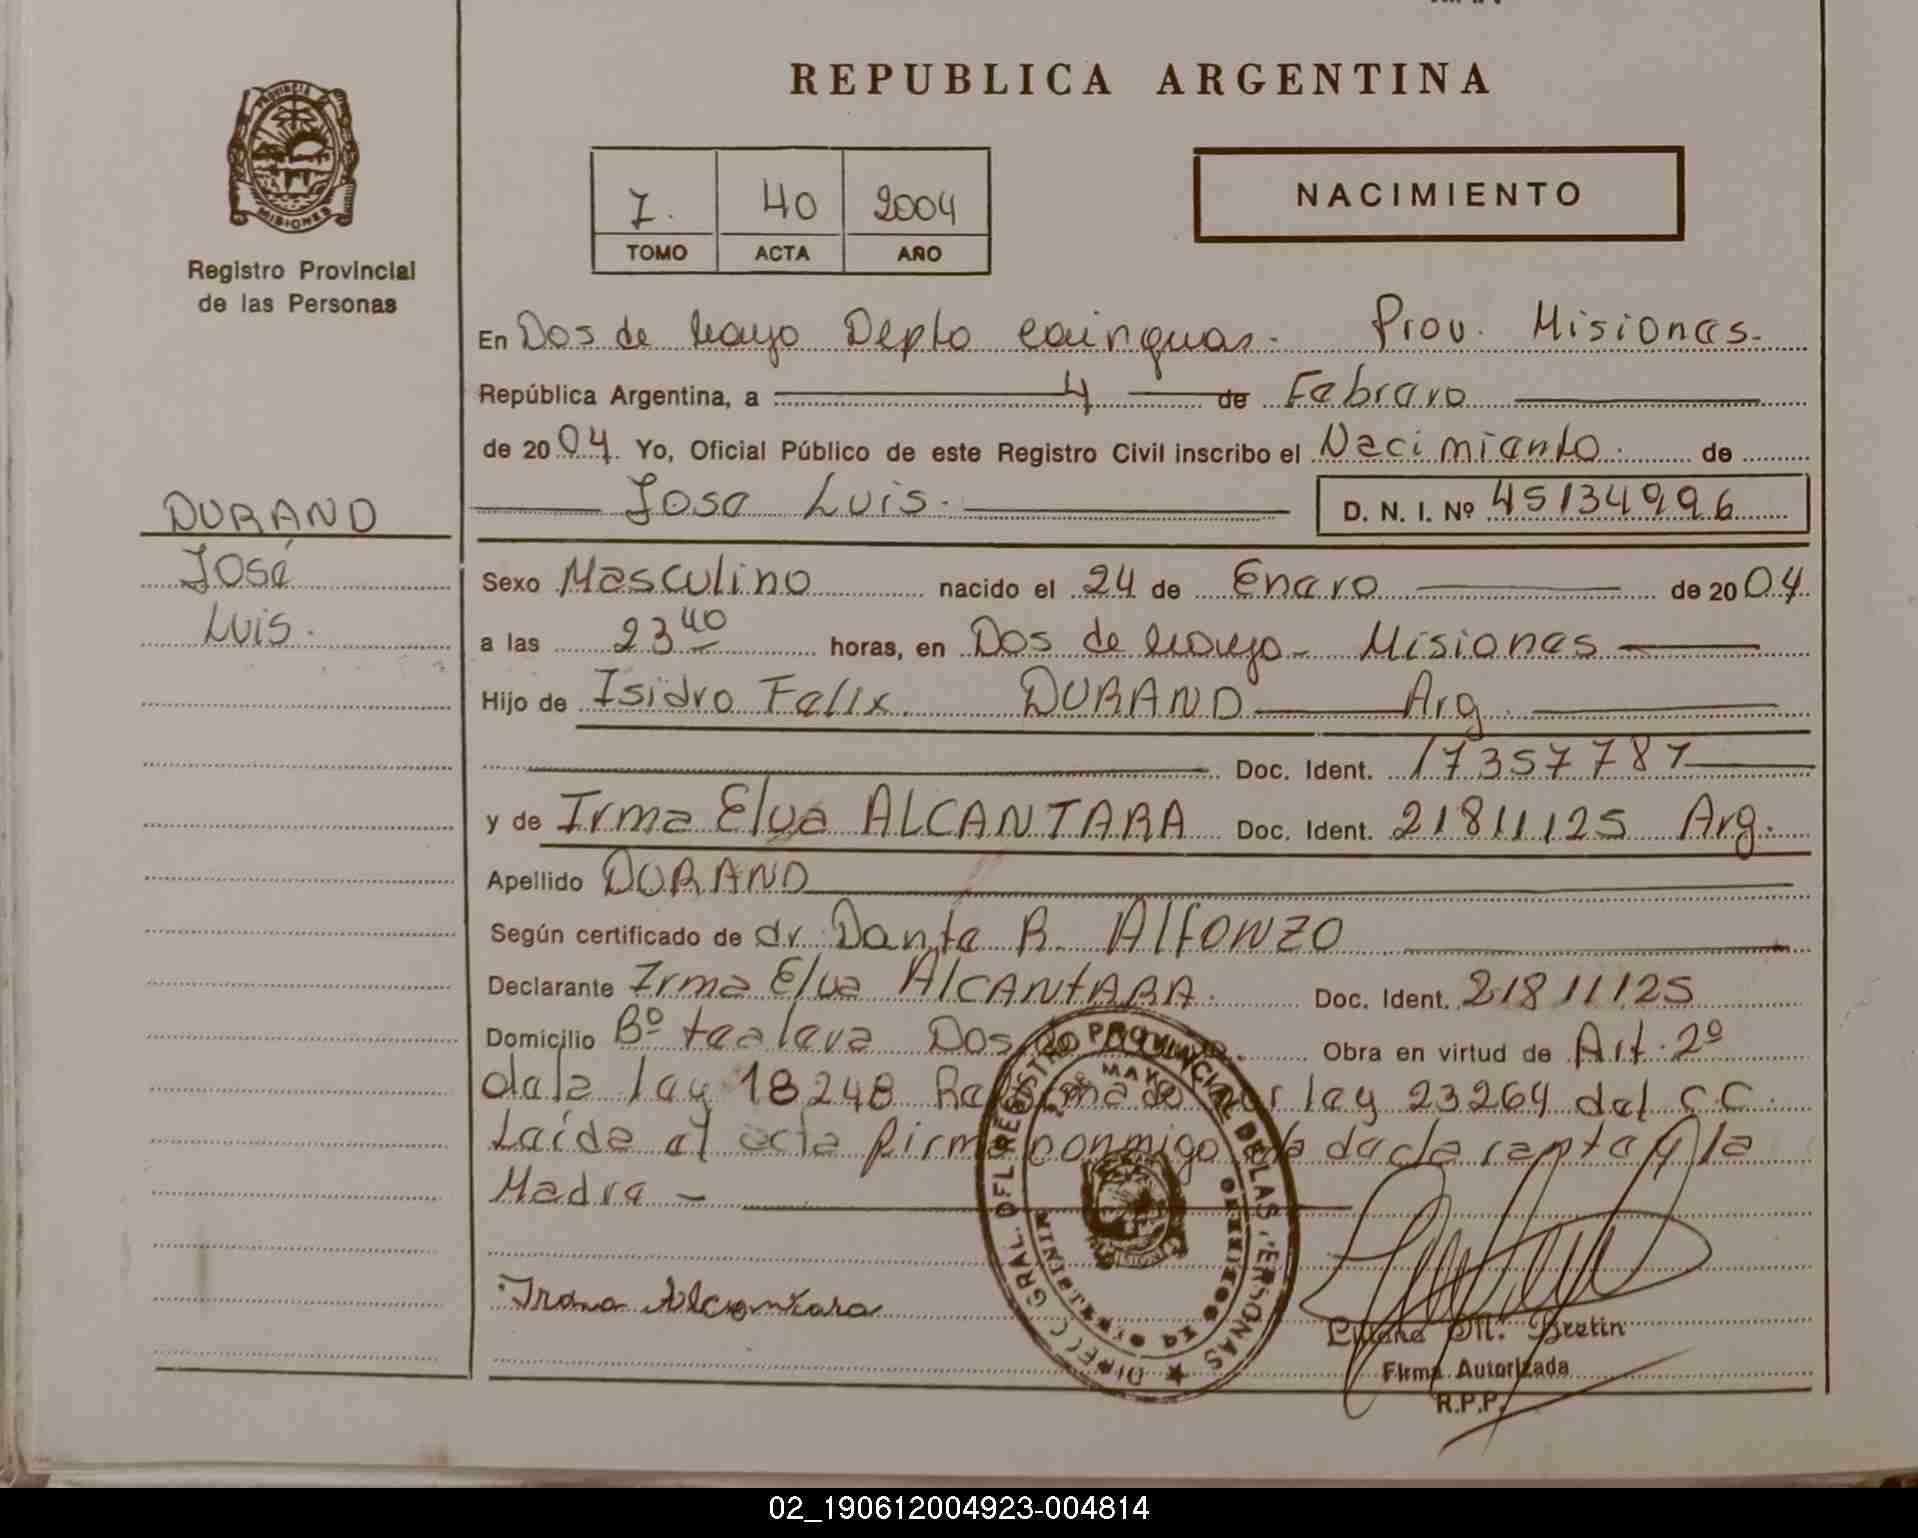 REPUBLICA ARGENTINA
PROVINCIA DE
MISIONES
Registro Provincial
de las Personas
7. 40 2004
TOMO ACTA AÑO
NACIMIENTO
En Dos de Mayo Depto Cainguas. Prov. Misiones.
República Argentina, a 4 de Febrero
de 2004. Yo, Oficial Público de este Registro Civil inscribo el Nacimiento. de
Jose Luis. D. N. I. Nº 45134996
DURAND
José
Luis.
Sexo Masculino nacido el 24 de Enero de 2004.
a las 23 40 horas, en Dos de Mayo - Misiones
Hijo de Isidro Felix DURAND Arg.
Doc. Ident. 17357787
y de Irma Elva ALCANTARA Doc. Ident. 21811125 Arg.
Apellido DURAND
Según certificado de dr. Dante R. Alfonzo
Declarante Irma Elva AlCANtARA. Doc. Ident. 21811125
Domicilio Bº Dos de Obra en virtud de Art. 2º
de la ley 18248 Reformado por ley 23264 del C.C.
Leída el acta firma conmigo la declarante y la
Madre -
Irma Alcantara
DIRECC. GRAL. DEL REGISTRO PROVINCIAL DE LAS PERSONAS
2 DE MAYO
MISIONES
M. Bretin
Firma Autorizada
R.P.P.
02_190612004923-004814